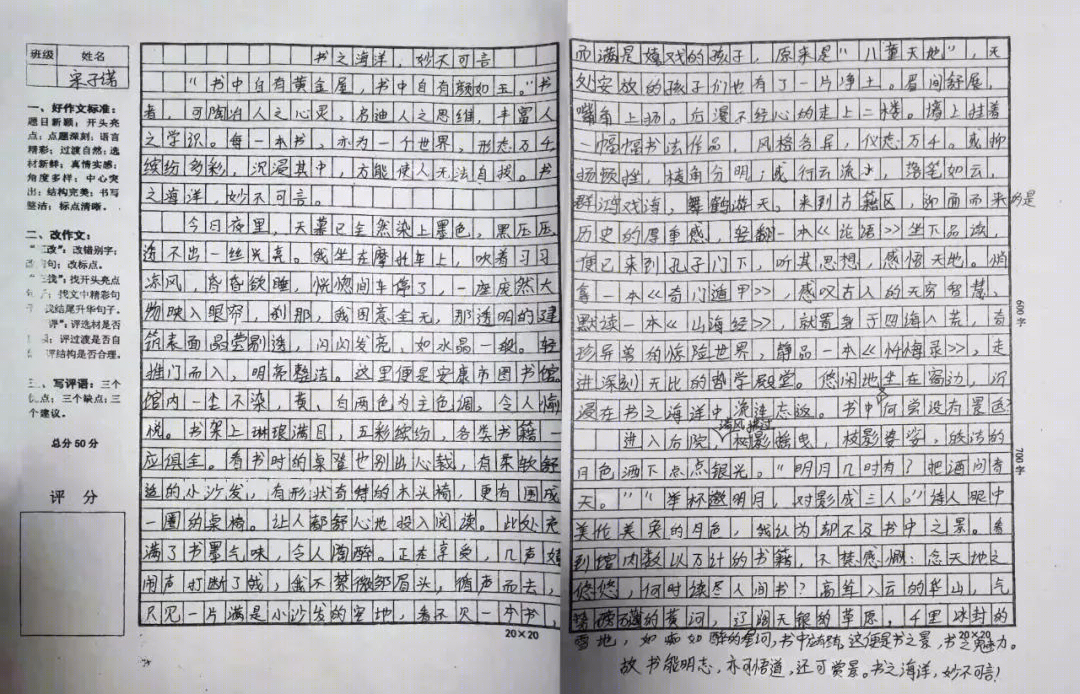 班级 姓名
梁子诺
一、好作文标准：
题目新颖；开头亮
点；点题深刻；语言
精彩；过渡自然；选
材新鲜；真情实感；
角度多样；中心突
出；结构完美；书写
整洁；标点清晰。
二、改作文：
改”：改错别字；
句；改标点。
找”：找开头亮点
找文中精彩句
找结尾升华句子。
评”：评选材是否
评过渡是否自
评结构是否合理。
三、写评语：三个
优点；三个缺点；三
个建议。
总分50分
评 分
书之海洋，妙不可言
“书中自有黄金屋，书中自有颜如玉。”书
者，可陶冶人之心灵，启迪人之思维，丰富人
之学识。每一本书，亦为一个世界，形态万千
缤纷多彩，沉浸其中，方能使人无法自拔。书
之海洋，妙不可言。
今日夜里，天幕已全然染上墨色，黑压压
透不出一丝光亮。我坐在摩托车上，吹着习习
凉风，昏昏欲睡，恍惚间车停了，一座庞然大
物映入眼帘，刹那，我困意全无，那透明的建
筑表面晶莹剔透，闪闪发亮，如水晶一般。轻
推门而入，明亮整洁。这里便是安康市图书馆
馆内一尘不染，黄、白两色为主色调，令人愉
悦。书架上琳琅满目，五彩缤纷，各类书籍一
应俱全。看书时的桌凳也别出心裁，有柔软舒
适的小沙发，有形状奇特的木头椅，更有围成
一圈的桌椅。让人都舒心地投入阅读。此处充
满了书墨气味，令人陶醉。正在享受，几声嬉
闹声打断了我，我不禁微皱眉头，循声而去，
只见一片满是小沙发的空地，看不见一本书，
20×20
而满是嬉戏的孩子，原来是“儿童天地”，无
处安放的孩子们也有了一片净土。眉间舒展，
嘴角上扬。后漫不经心的走上二楼。墙上挂着
一幅幅书法作品，风格各异，仪态万千。或抑
扬顿挫，棱角分明；或行云流水，落笔如云，
群鸿戏海，舞鹤游天。来到古籍区，迎面而来的是
历史的厚重感，轻翻一本《论语》坐下品读，
便已来到孔子门下，听其思想，感悟天地。悄
拿一本《奇门遁甲》，感叹古人的无穷智慧，
默读一本《山海经》，就置身于四海八荒，奇
珍异兽的惊险世界，静品一本《忏悔录》，走
进深刻无比的哲学殿堂。悠闲地坐在窗边，沉
浸在书之海洋中，流连忘返。书中何尝没有景色？
进入后院，清风拂过，树影摇曳，枝影婆娑，皎洁的
月色洒下点点银光。“明月几时有？把酒问青
天。”“举杯邀明月，对影成三人。”诗人眼中
美伦美奂的月色，我认为却不及书中之景。看
到馆内数以万计的书籍，不禁感慨：念天地之
悠悠，何时读尽人间书？高耸入云的华山，气
势磅礴的黄河，辽阔无垠的草原，千里冰封的
雪地，如痴如醉的星河，书中法统，这便是书之景，书之魅力。
故书能明志，亦可悟道，还可赏景。书之海洋，妙不可言！
600字
700字
20×20